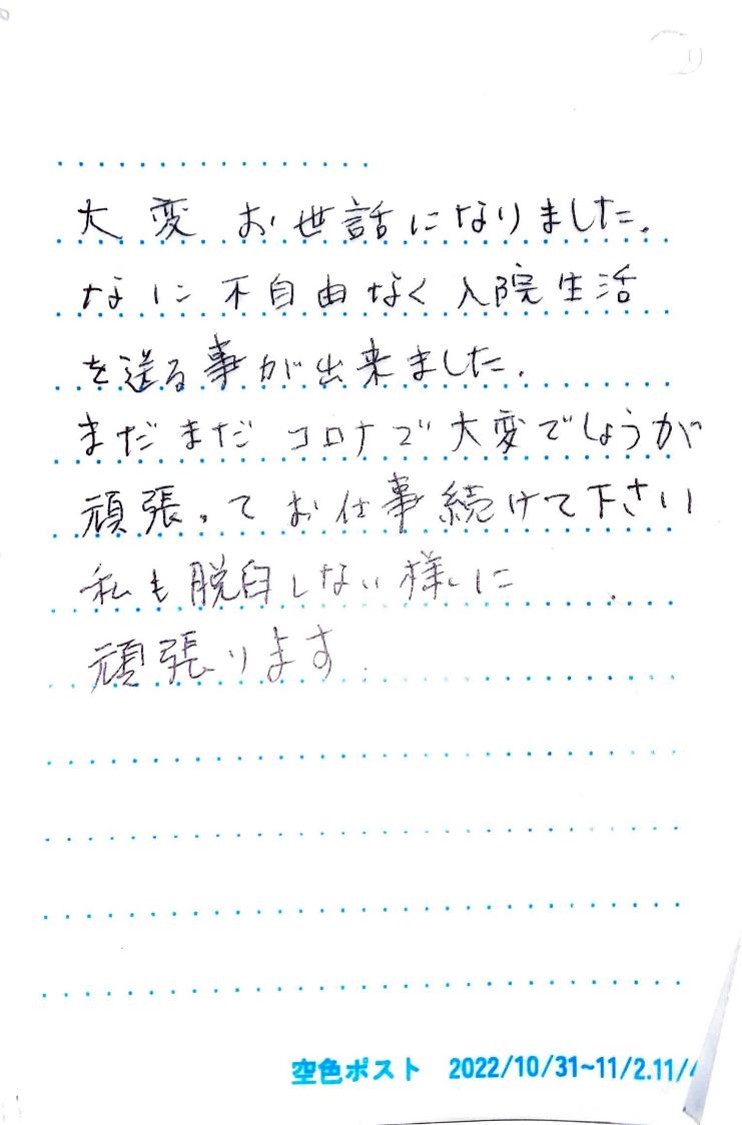 大変 お世話になりました。
なに不自由なく入院生活
を送る事が出来ました。
まだまだ コロナで大変でしょうが
頑張って お仕事続けて下さい
私も脱臼しない様に
頑張ります
空色ポスト 2022/10/31~11/2.11/